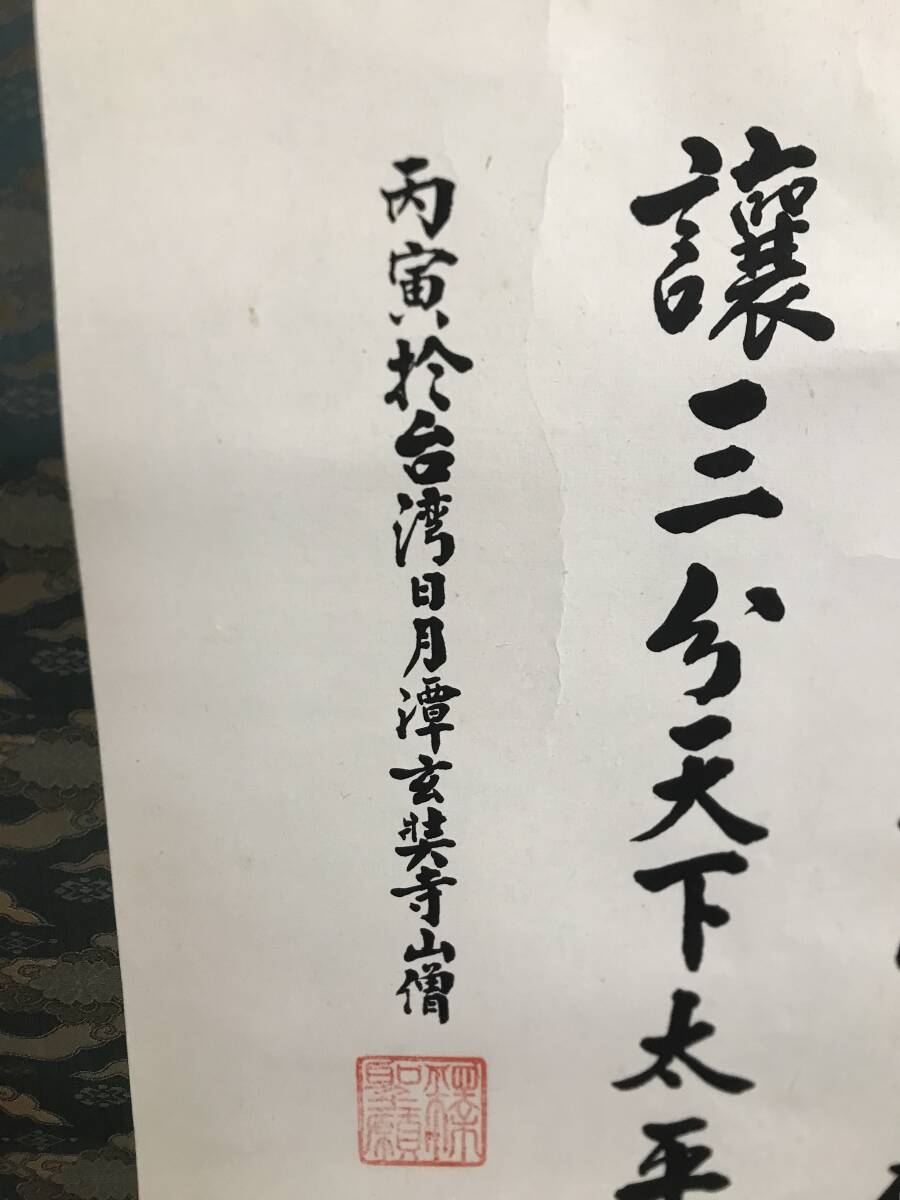 讓三分天下太平
丙寅於台湾日月潭玄奘寺山僧